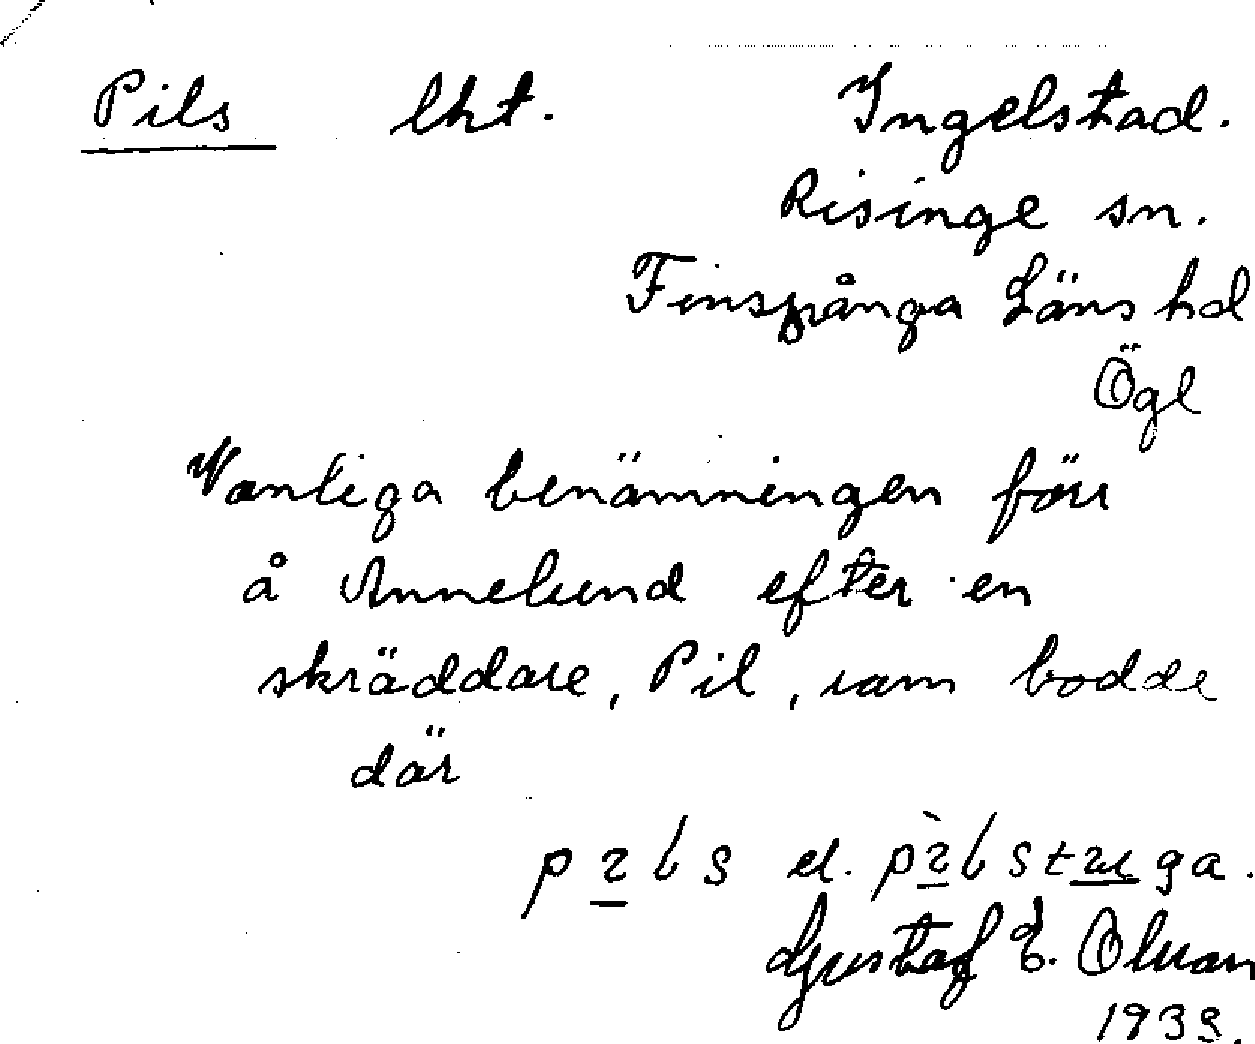 Pils lht. Ingelstad.
Risinge sn.
Finspånga Läns hd
Ögl
Vanliga benämningen förr
å Annelund efter en
skräddare, Pil, som bodde
där
el.
Gustaf E. Olsson